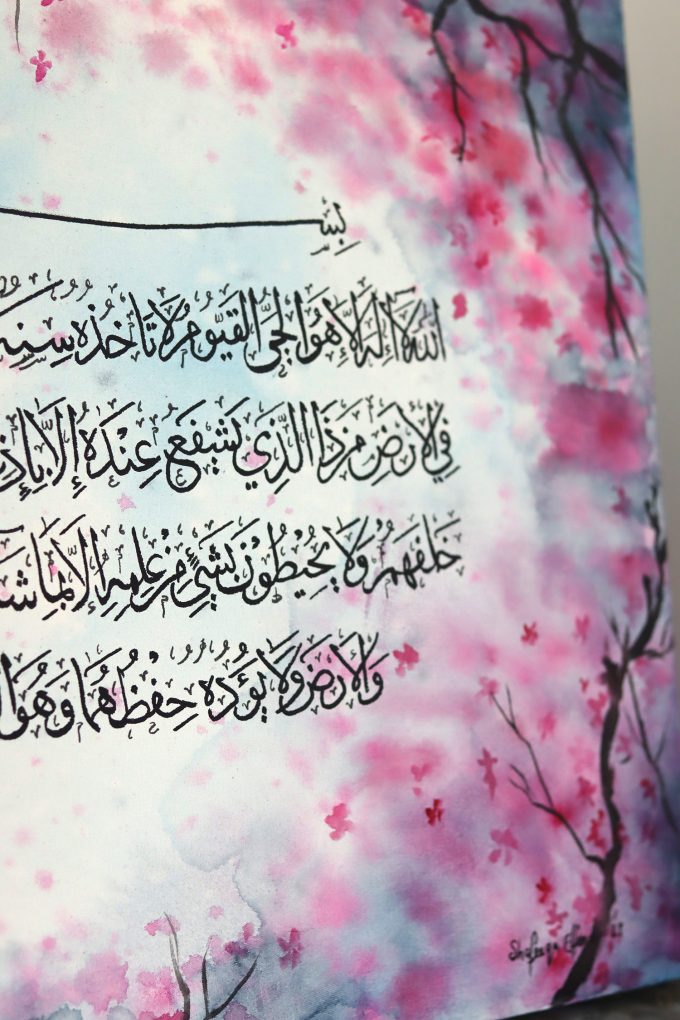 بِسْ
اللهُ لَا إِلٰهَ إِلَّا هُوَ الْحَيُّ الْقَيُّوْمُ لَا تَأْخُذُهُ سِنَةٌ
فِي الْأَرْضِ مَنْ ذَا الَّذِي يَشْفَعُ عِنْدَهُ إِلَّا
خَلْفَهُمْ وَلَا يُحِيْطُوْنَ بِشَيْءٍ مِنْ عِلْمِهِ إِلَّا بِمَا
وَالْأَرْضَ وَلَا يَؤُدُهُ حِفْظُهُمَا وَهُوَ